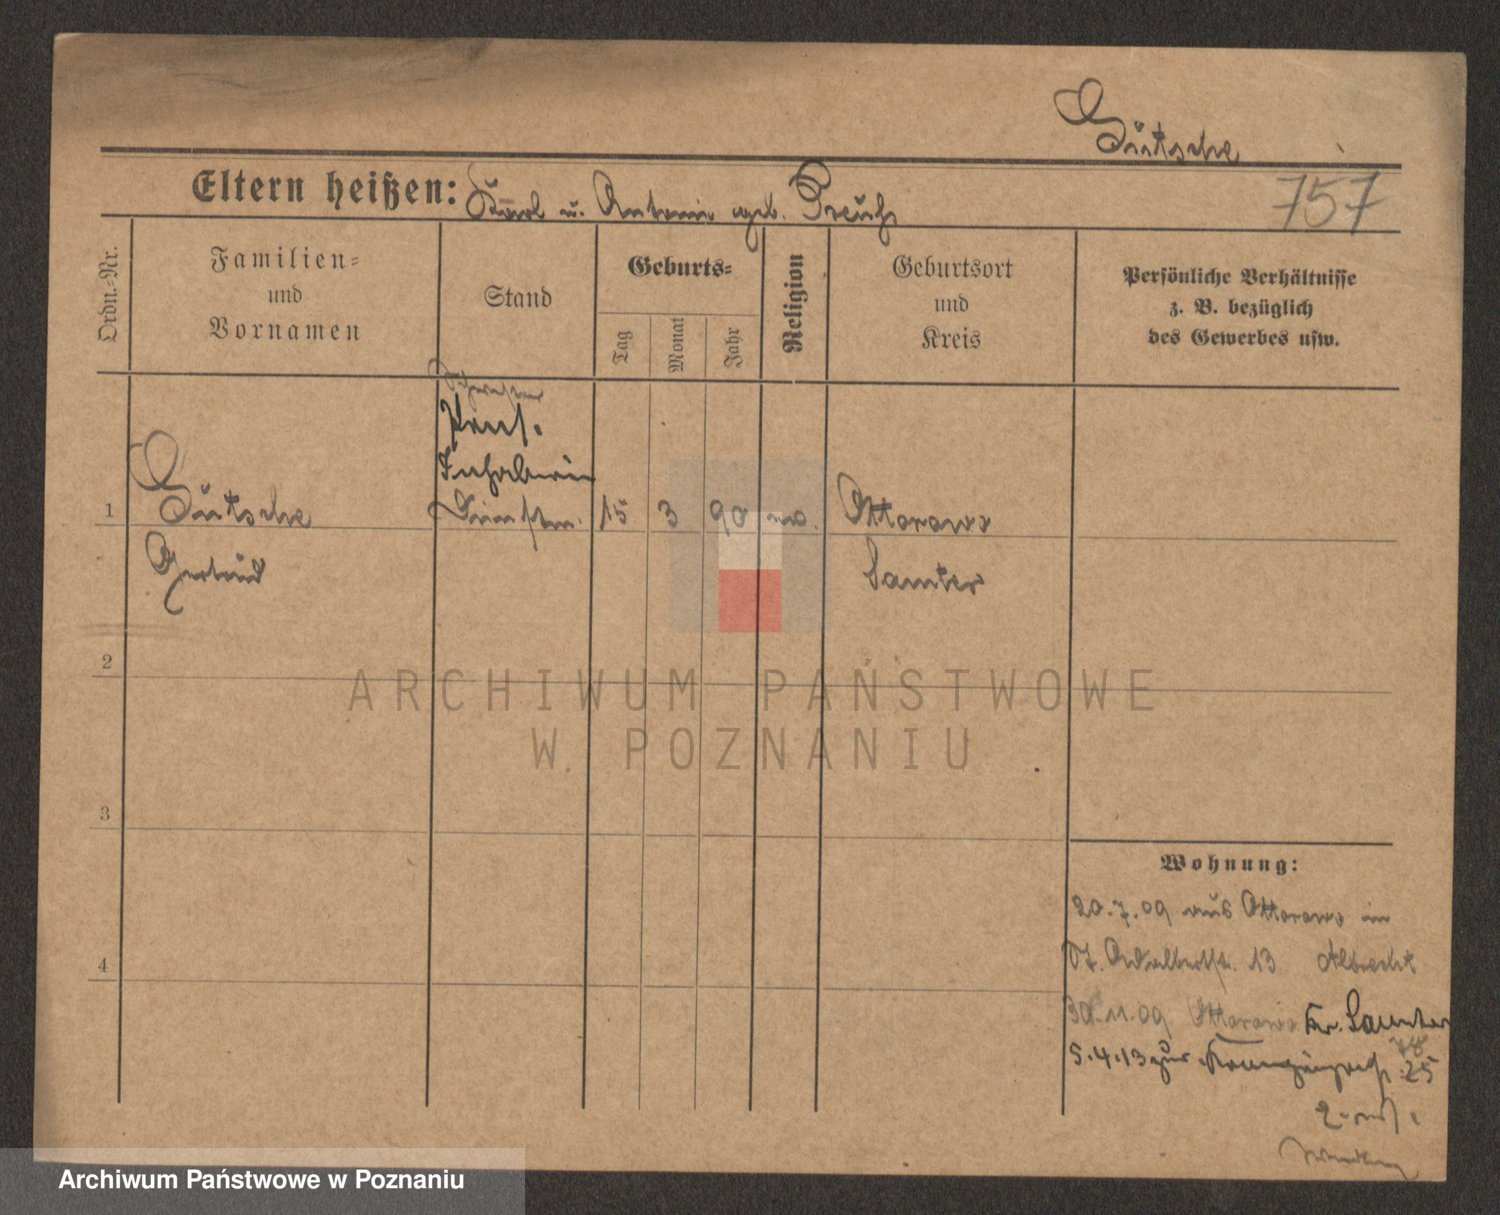 Gütsche
Eltern heißen: Karl u. Antonie geb. Preuß
757
Ordn.-Nr.
Familien-
und
Vornamen
Stand
Geburts-
Tag
Monat
Jahr
Religion
Geburtsort
und
Kreis
Persönliche Verhältnisse
z. B. bezüglich
des Gewerbes usw.
Pens.
Inhaberin
1 Gütsche 15 3 90 ev. Ottorowo
Gertrud Samter
2
3
4
Wohnung:
20.7.09 aus Ottorowo in
Adalbertstr. 13 Albrecht
30.11.09 Ottorowo Kr. Samter
5.4.13 zur 25
ARCHIWUM PAŃSTWOWE
W POZNANIU
Archiwum Państwowe w Poznaniu